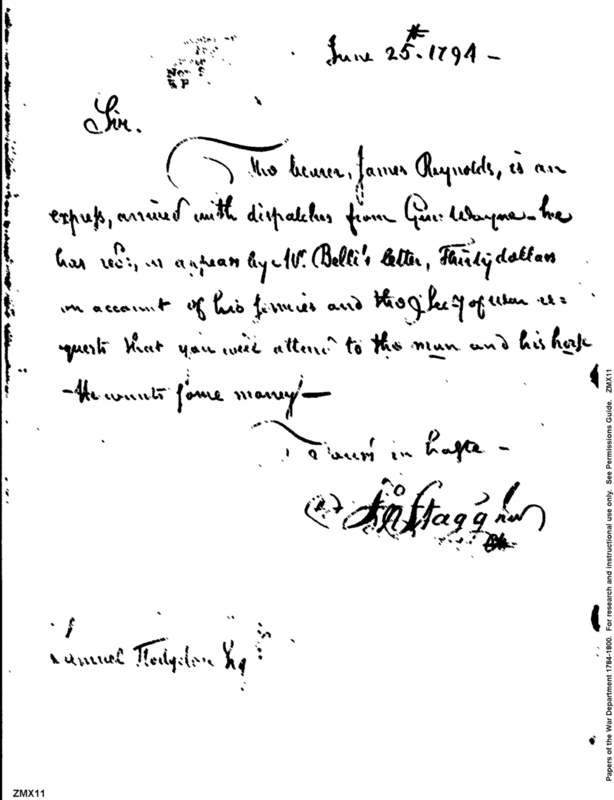 June 25th. 1794 -
Sir.
The bearer, James Reynolds, is an
express, arrived with dispatches from Genl. Wayne - he
has recd., as appears by Mr. Belli's letter, Thirty dollars
on account of his services and the Secy of War re=
quests that you will attend to the man and his horse
- He wants some money -
Yours in haste -
Jno Stagg Jun
Samuel Hodgdon Esq
ZMX11
Papers of the War Department 1784-1800. For research and instructional use only. See Permissions Guide. ZMX11